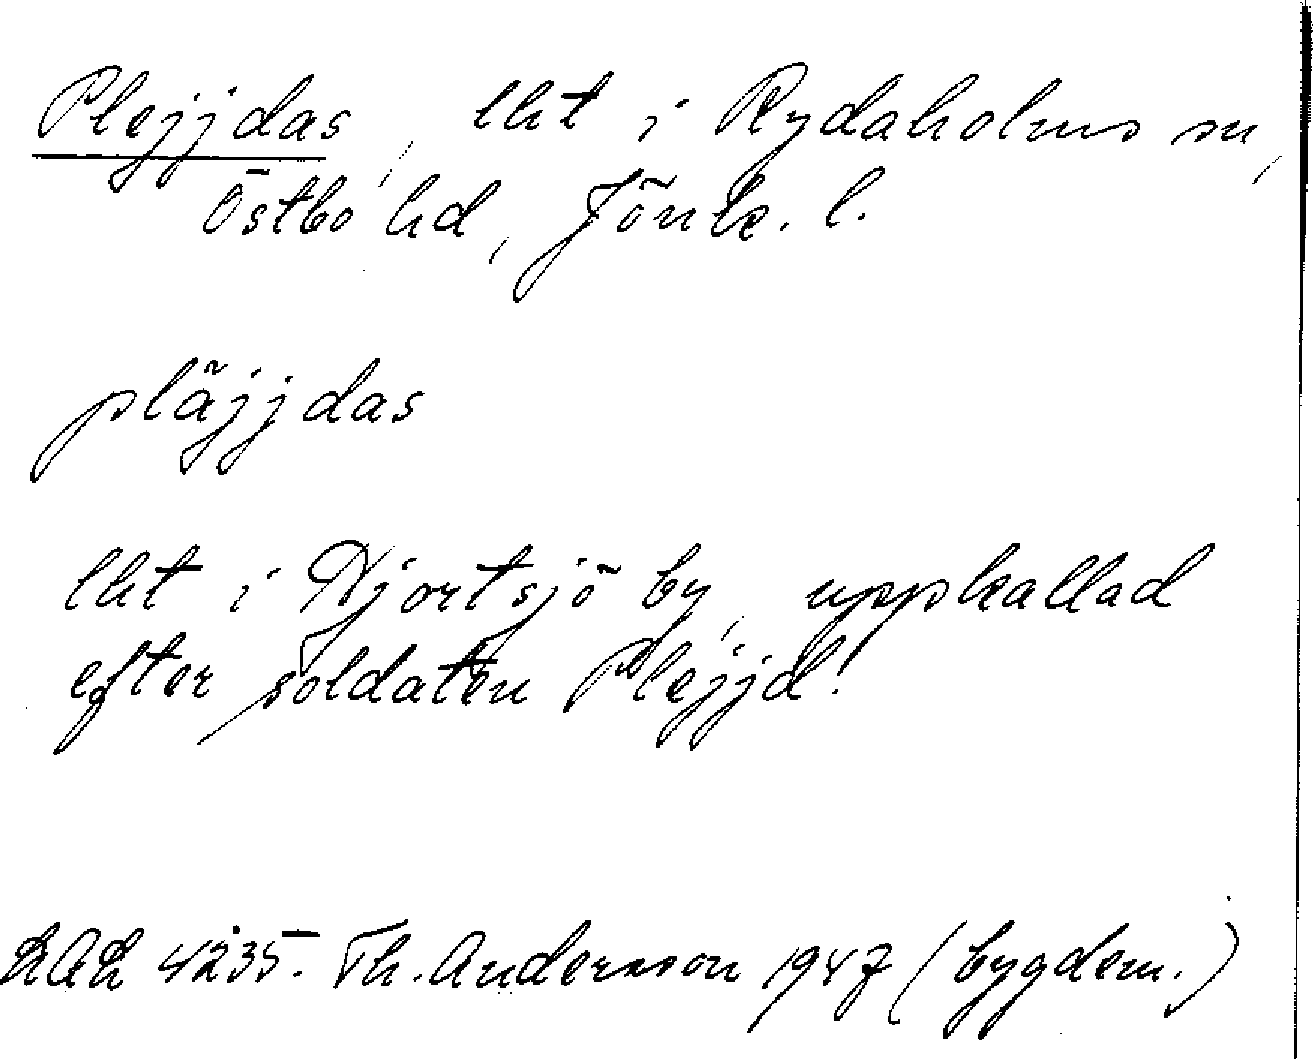 Plejjdas, lht i Rydaholms sn,
Östbo hd, Jönk. l.
pläjjdas
lht i Hjortsjö by, uppkallad
efter soldaten Plejjd.
4235. Th. Andersson 1947 (bygdem.)